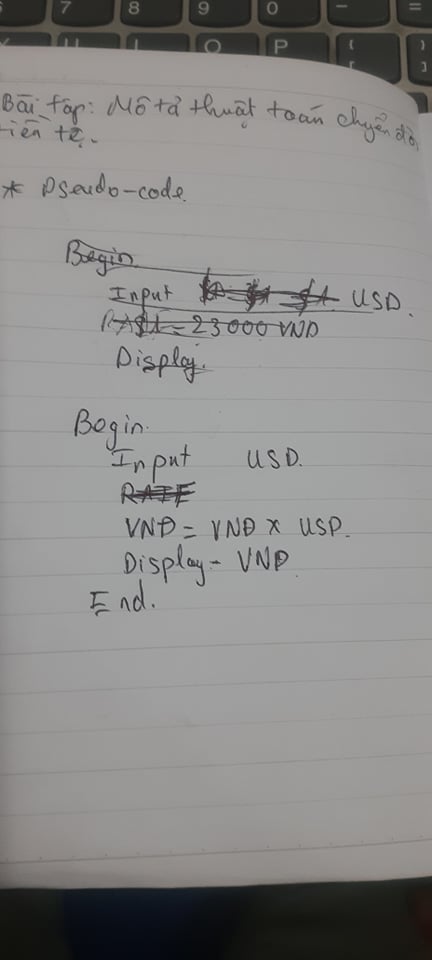 7 8 9 0 - =
U O P { [
Bài tập: Mô tả thuật toán chuyển đổi
tiền tệ.
* Pseudo-code
Begin
Input USD.
= 23000 VND
Display.
Begin.
Input USD.
RATE
VNĐ = VNĐ x USD.
Display - VNĐ
End.